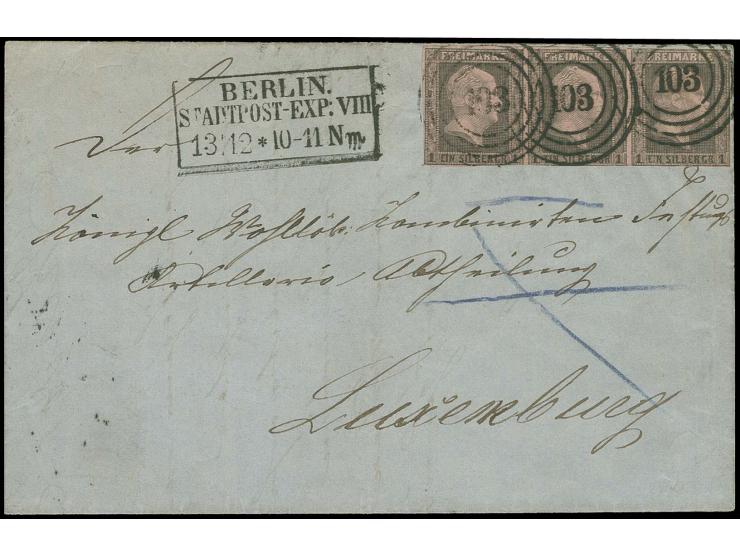 BERLIN.
STADTPOST-EXP: VIII
13 12 * 10-11 Nm
FREIMARKE FREIMARKE FREIMARKE
103 103 103
1 EIN SILBERGR. 1 1 EIN SILBERGR. 1 1 EIN SILBERGR 1
Der
Königl Wohllöb: Kombinirten Festungs
Artillerie Abtheilung
Luxemburg